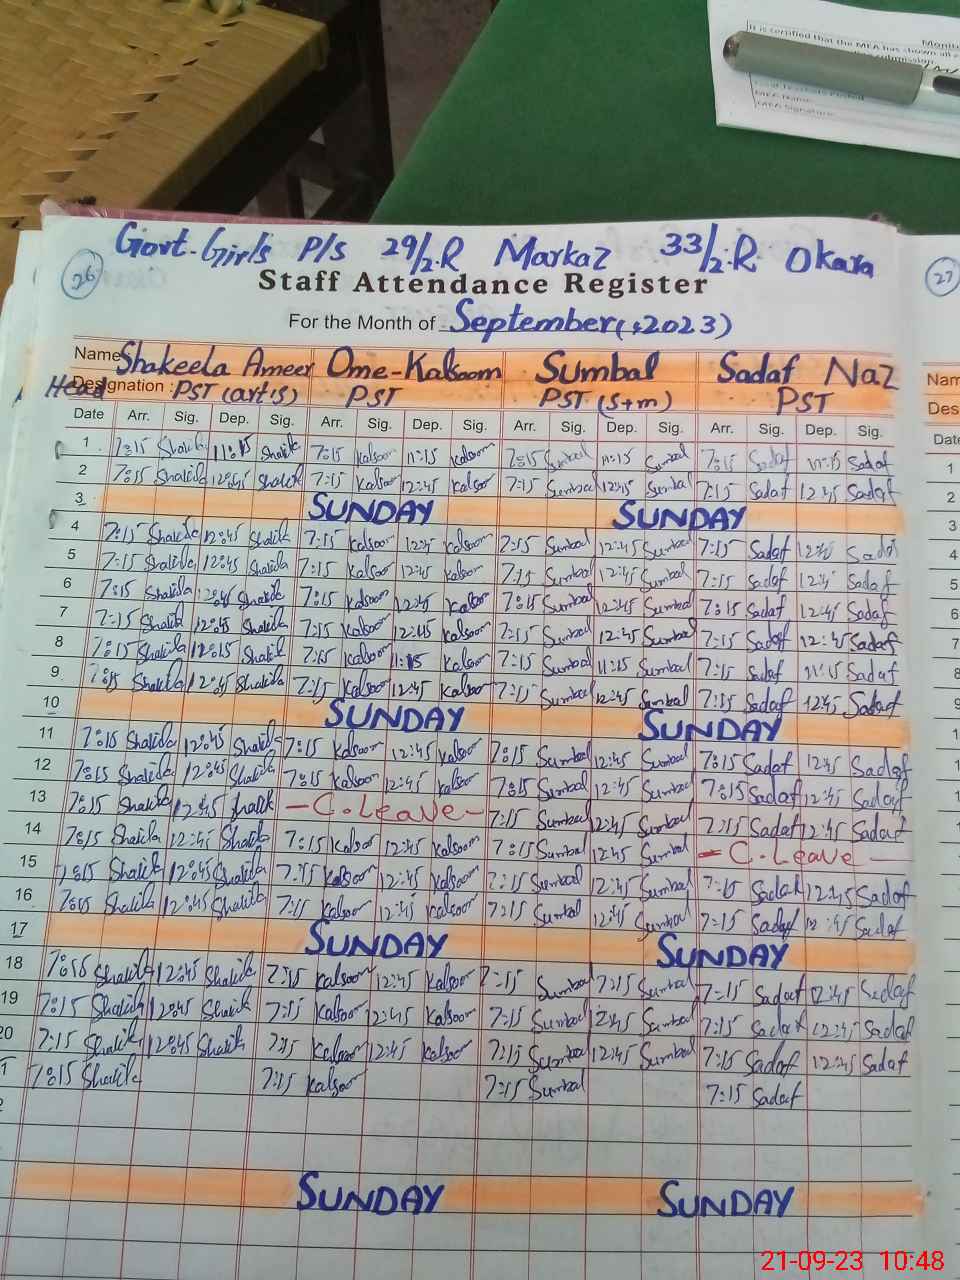 It is certified that the MEA has shown all
Monito
submission
MEA Name:
MEA Signature:
Govt. Girls P/s 29/2.R Markaz 33/2.R Okara
26
27
Staff Attendance Register
For the Month of September(,2023)
Name Shakeela Ameer Ome-Kalsoom Sumbal Sadaf Naz
Nam
Head Designation : PST (arts) PST PST (S+m) PST
Des
Date Arr. Sig. Dep. Sig. Arr. Sig. Dep. Sig. Arr. Sig. Dep. Sig. Arr. Sig. Dep. Sig.
Date
1 7:15 Shakila 11:15 Shakila 7:15 Kalsoom 11:15 Kalsoom 7:15 Sumbal 11:15 Sumbal 7:15 Sadaf 11:15 Sadaf 1
2 7:15 Shakila 12:45 Shakila 7:15 Kalsoom 12:45 Kalsoom 7:15 Sumbal 12:45 Sumbal 7:15 Sadaf 12:45 Sadaf 2
3 SUNDAY SUNDAY 3
4 7:15 Shakila 12:45 Shakila 7:15 Kalsoom 12:45 Kalsoom 7:15 Sumbal 12:45 Sumbal 7:15 Sadaf 12:45 Sadaf 4
5 7:15 Shakila 12:45 Shakila 7:15 Kalsoom 12:45 Kalsoom 7:15 Sumbal 12:45 Sumbal 7:15 Sadaf 12:45 Sadaf 5
6 7:15 Shakila 12:45 Shakila 7:15 Kalsoom 12:45 Kalsoom 7:15 Sumbal 12:45 Sumbal 7:15 Sadaf 12:45 Sadaf 6
7 7:15 Shakila 12:45 Shakila 7:15 Kalsoom 12:45 Kalsoom 7:15 Sumbal 12:45 Sumbal 7:15 Sadaf 12:45 Sadaf 7
8 7:15 Shakila 12:15 Shakila 7:15 Kalsoom 11:15 Kalsoom 7:15 Sumbal 11:15 Sumbal 7:15 Sadaf 11:15 Sadaf 8
9 7:15 Shakila 12:45 Shakila 7:15 Kalsoom 12:45 Kalsoom 7:15 Sumbal 12:45 Sumbal 7:15 Sadaf 12:45 Sadaf 9
10 SUNDAY SUNDAY
11 7:15 Shakila 12:45 Shakila 7:15 Kalsoom 12:45 Kalsoom 7:15 Sumbal 12:45 Sumbal 7:15 Sadaf 12:45 Sadaf
12 7:15 Shakila 12:45 Shakila 7:15 Kalsoom 12:45 Kalsoom 7:15 Sumbal 12:45 Sumbal 7:15 Sadaf 12:45 Sadaf
13 7:15 Shakila 12:45 Shakila - C. Leave - 7:15 Sumbal 12:45 Sumbal 7:15 Sadaf 12:45 Sadaf
14 7:15 Shakila 12:45 Shakila 7:15 Kalsoom 12:45 Kalsoom 7:15 Sumbal 12:45 Sumbal - C. Leave -
15 7:15 Shakila 12:45 Shakila 7:15 Kalsoom 12:45 Kalsoom 7:15 Sumbal 12:45 Sumbal 7:15 Sadaf 12:45 Sadaf
16 7:15 Shakila 12:45 Shakila 7:15 Kalsoom 12:45 Kalsoom 7:15 Sumbal 12:45 Sumbal 7:15 Sadaf 12:45 Sadaf
17 SUNDAY SUNDAY
18 7:15 Shakila 12:45 Shakila 7:15 Kalsoom 12:45 Kalsoom 7:15 Sumbal 7:15 Sumbal 7:15 Sadaf 12:45 Sadaf
19 7:15 Shakila 12:45 Shakila 7:15 Kalsoom 12:45 Kalsoom 7:15 Sumbal 12:45 Sumbal 7:15 Sadaf 12:45 Sadaf
20 7:15 Shakila 12:45 Shakila 7:15 Kalsoom 12:45 Kalsoom 7:15 Sumbal 12:45 Sumbal 7:15 Sadaf 12:45 Sadaf
1 7:15 Shakila 7:15 Kalsoom 7:15 Sumbal 7:15 Sadaf
2
SUNDAY SUNDAY
21-09-23 10:48